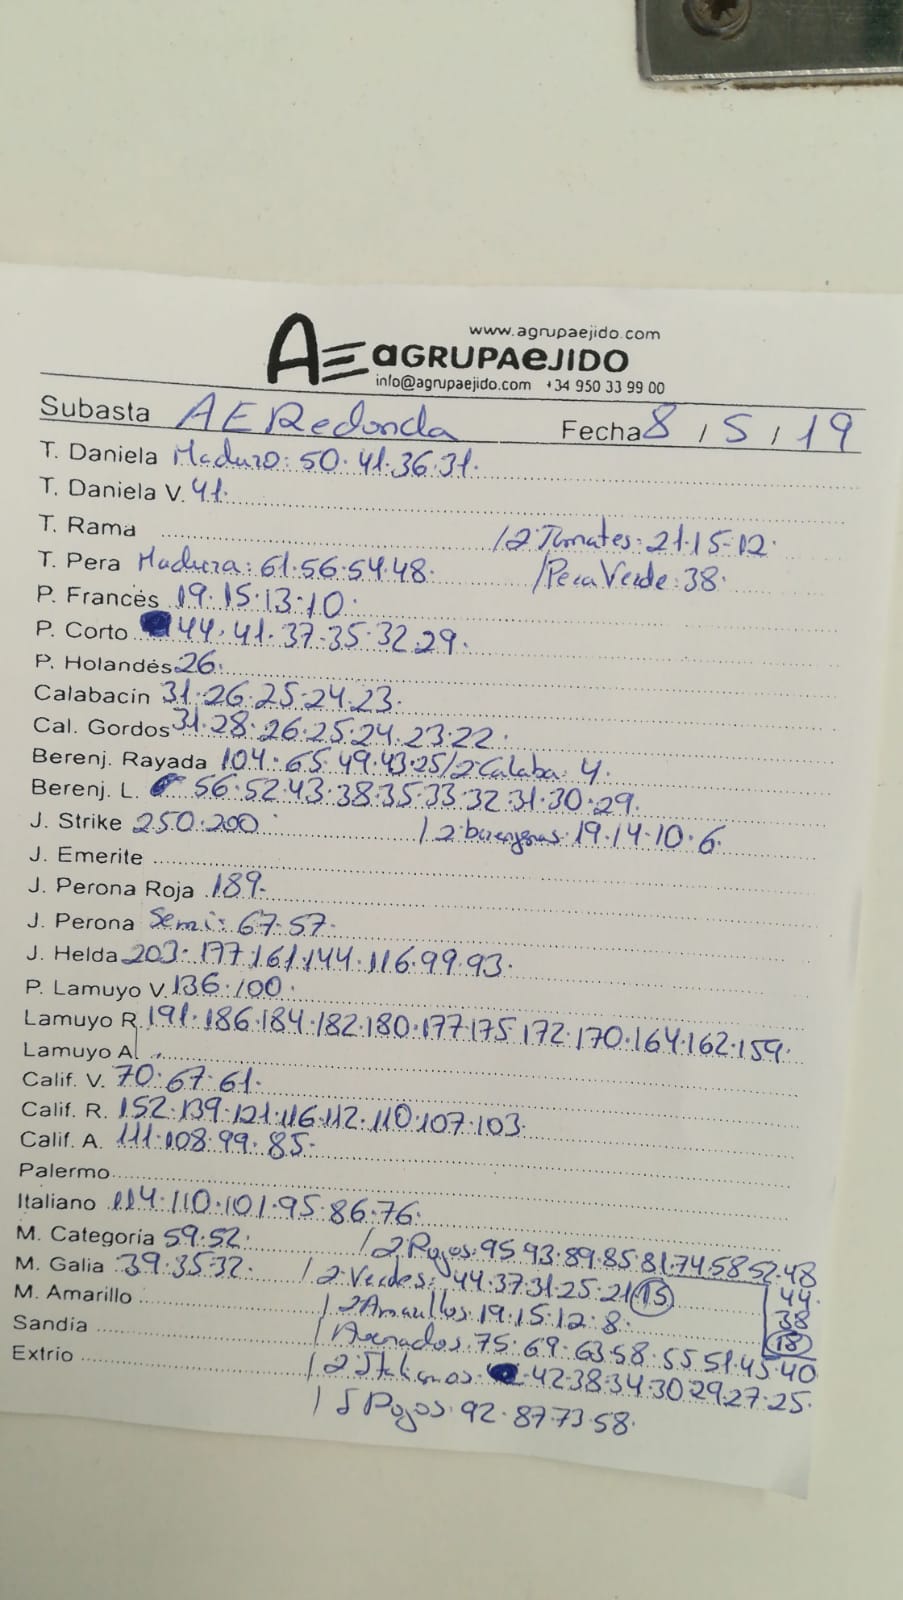 www.agrupaejido.com
AE aGRUPAeJIDO
info@agrupaejido.com +34 950 33 99 00
Subasta AE Redonda Fecha 8 / 5 / 19
T. Daniela Maduro: 50. 41. 36. 31.
T. Daniela V. 41.
T. Rama /2 Tomates: 21. 15. 12.
T. Pera Madura: 61. 56. 54. 48. /Pera Verde: 38.
P. Francés 19. 15. 13. 10.
P. Corto 44. 41. 37. 35. 32. 29.
P. Holandés 26.
Calabacín 31. 26. 25. 24. 23.
Cal. Gordos 31. 28. 26. 25. 24. 23. 22.
Berenj. Rayada 104. 65. 49. 43. 25 /2 Calaba: 4.
Berenj. L. 56. 52. 43. 38. 35. 33. 32. 31. 30. 29.
J. Strike 250. 200 /2 berenjenas: 19. 14. 10. 6.
J. Emerite
J. Perona Roja 189.
J. Perona Semi: 67. 57.
J. Helda 203. 177. 161. 144. 116. 99. 93.
P. Lamuyo V. 136. 100.
Lamuyo R. 191. 186. 184. 182. 180. 177. 175. 172. 170. 164. 162. 159.
Lamuyo A.
Calif. V. 70. 67. 61.
Calif. R. 152. 139. 121. 116. 112. 110. 107. 103.
Calif. A. 111. 108. 99. 85.
Palermo
Italiano 114. 110. 101. 95. 86. 76.
M. Categoría 59. 52. /2 Rojos: 95. 93. 89. 85. 81. 74. 58. 52. 48
M. Galia 39. 35. 32. /2 Verdes: 44. 37. 31. 25. 21. 15 44.
M. Amarillo /2 Amarillos: 19. 15. 12. 8. 38
Sandía /Asurados: 75. 69. 63. 58. 55. 51. 45. 40 18
Extrio /2 Italianos: 42. 38. 34. 30. 29. 27. 25.
/J Rojos: 92. 87. 73. 58.